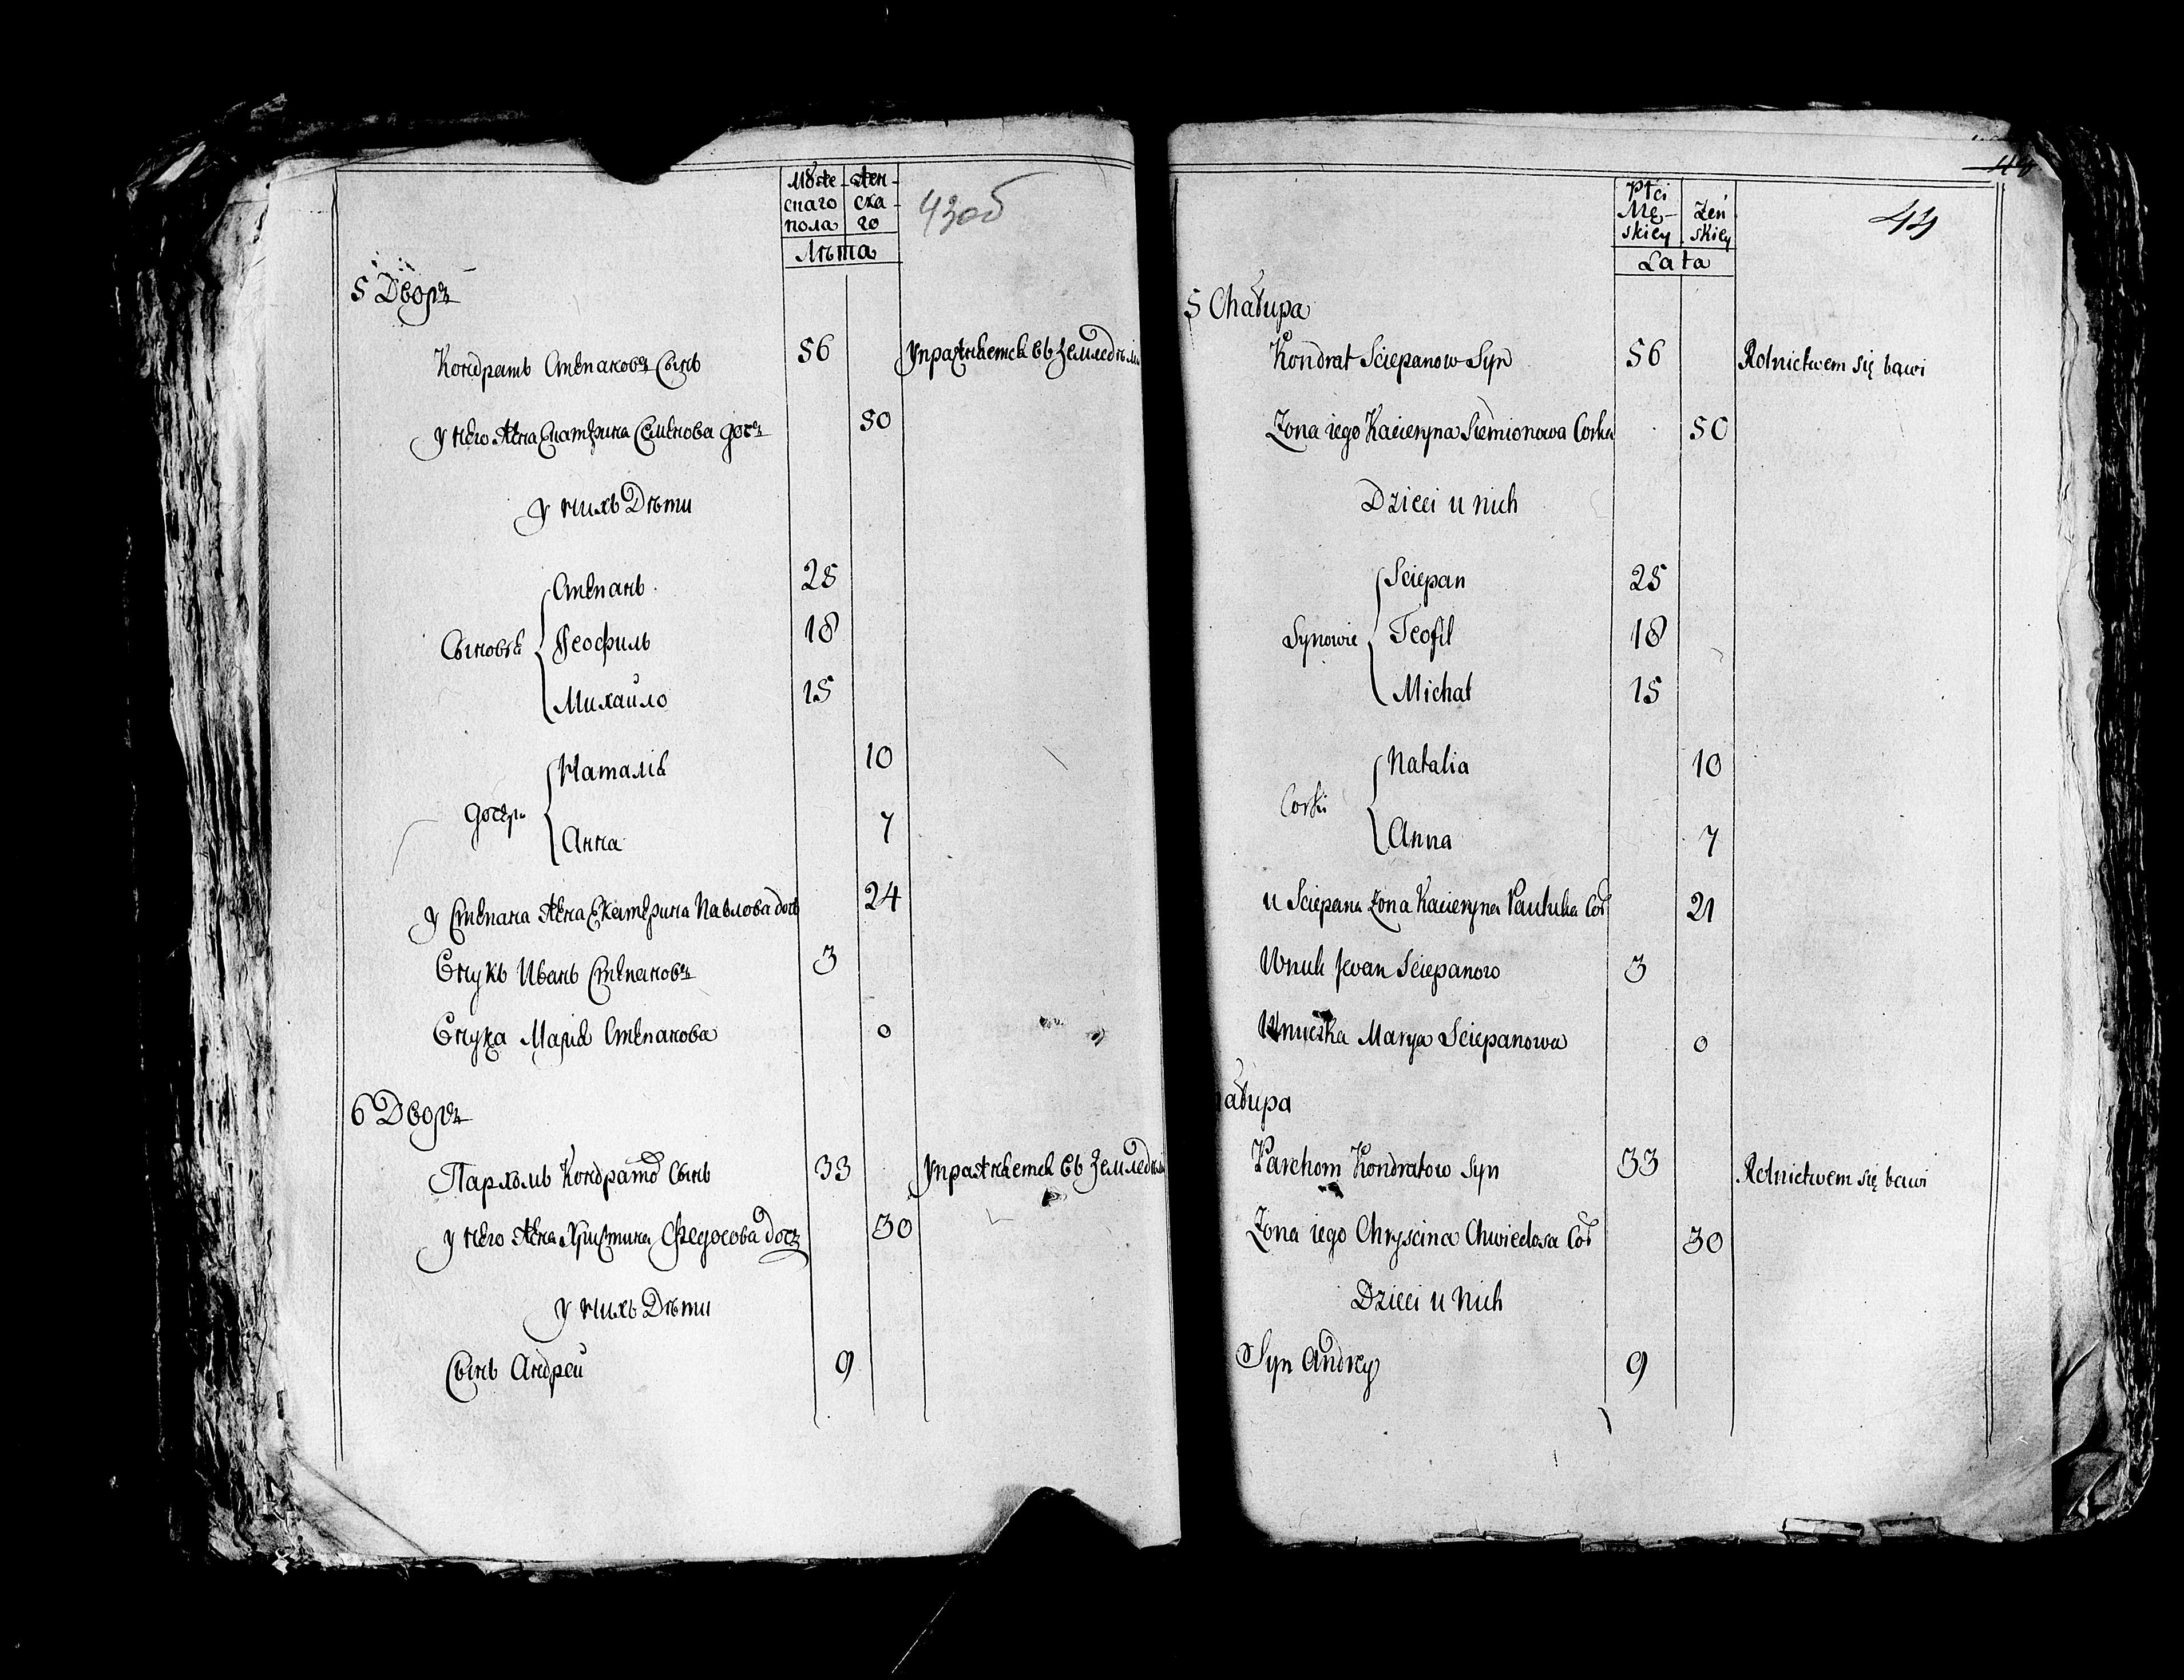 Мужескаго пола
Женскаго
Лѣта
43об
5 Дворъ
Кондратъ Степановъ Сынъ 56 Упражняется въ Земледѣлі
У него жена Екатерина Семенова дочь 50
У нихъ Дѣти
Степанъ 25
Сыновья Феофилъ 18
Михайло 15
Наталія 10
дочери
Анна 7
У Степана жена Екатерина Павлова дочь 24
Внукъ Иванъ Степановъ 3
Внука Марія Степанова 0
6 Дворъ
Пархомъ Кондратов Сынъ 33 Упражняется въ Земледѣлі
У него жена Христина Федосова дочь 30
У нихъ Дѣти
Сынъ Андрей 9
Płci Męskiey
Żeńskiey
Lata
44
5 Chałupa
Kondrat Sciepanow Syn 56 Rolnictwem się bawi
Zona iego Kacieryna Siemionowa Corka 50
Dzieci u nich
Sciepan 25
Synowie Teofil 18
Michał 15
Natalia 10
Corki
Anna 7
u Sciepana Zona Kacieryna Pauluka Cor 21
Wnuk Jwan Sciepanow 3
Wnuczka Marya Sciepanowa 0
ałupa
Parchom Kondratow Syn 33 Rolnictwem się bawi
Zona iego Chryscina Chwiedosa Cor 30
Dzieci u Nich
Syn Andrey 9